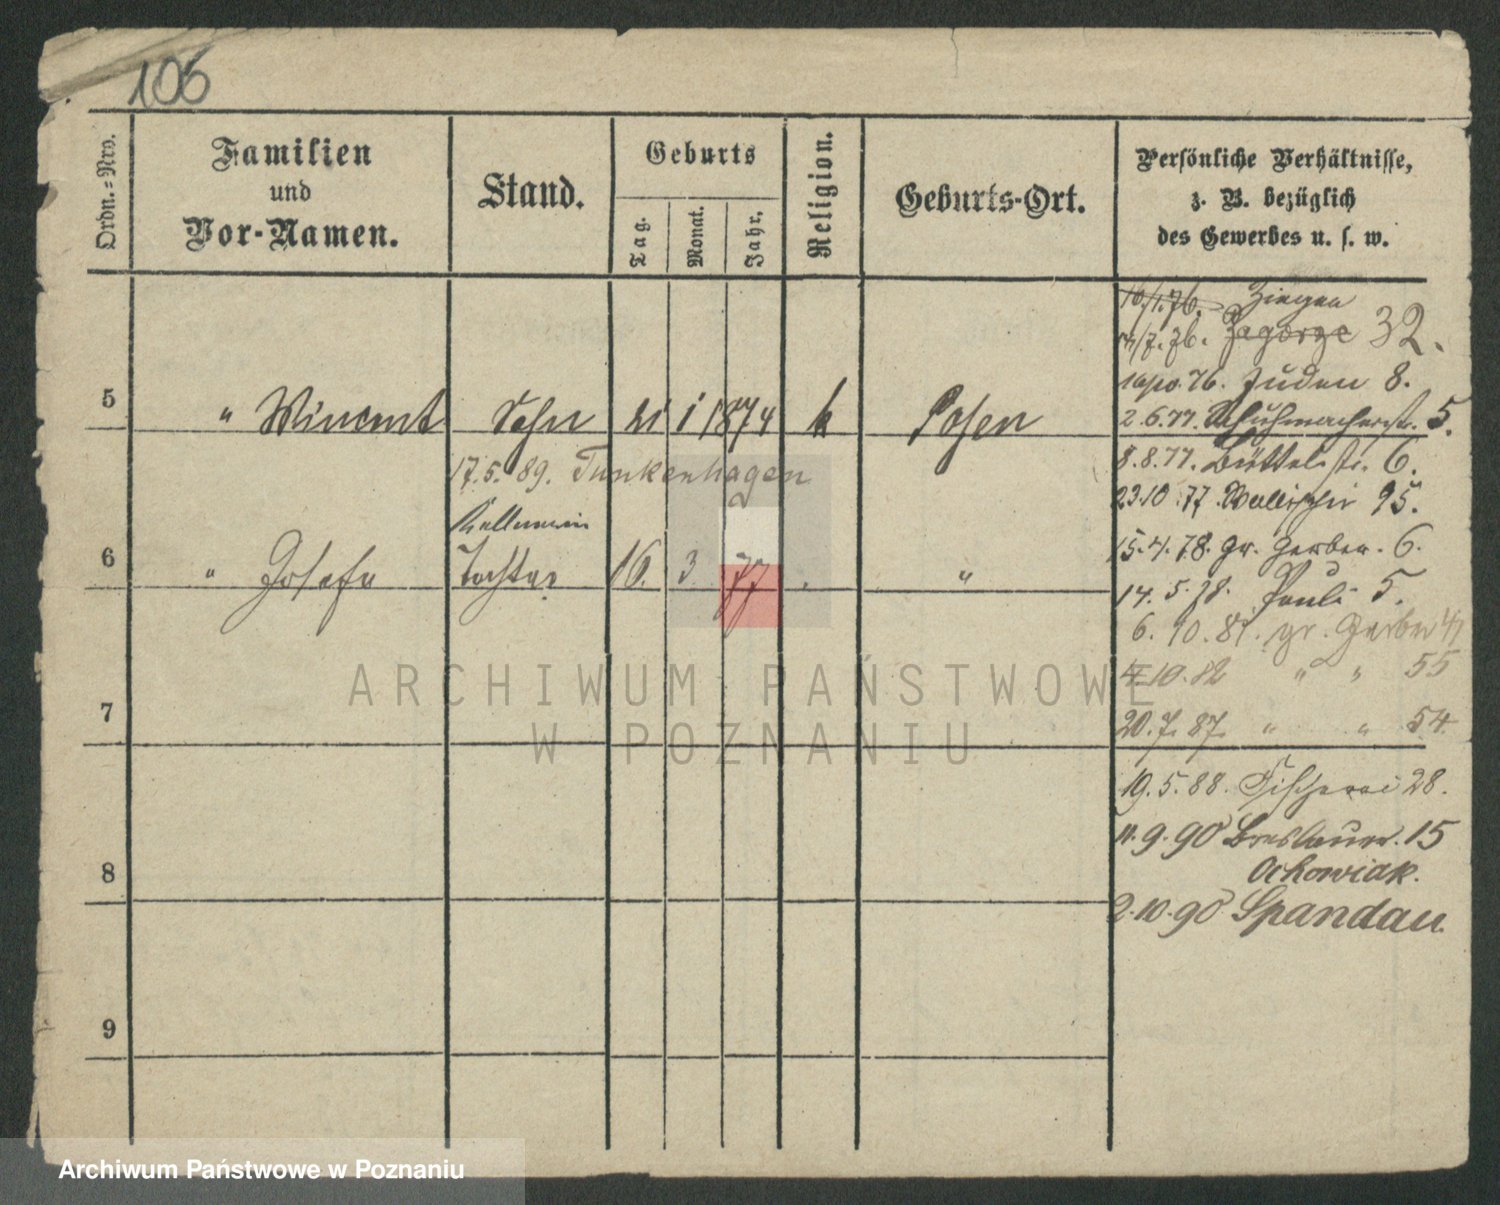 106
Ordn.=Nro.
Familien
und
Vor-Namen.
Stand.
Geburts
Tag.
Monat.
Jahr.
Religion.
Geburts-Ort.
Persönliche Verhältnisse,
z. B. bezüglich
des Gewerbes u. s. w.
5 " Wincent Sohn 21 1 1874 k Posen
17.5.89. Tunkenhagen
Kellnerin
6 " Josefa Tochter 16. 3 77 "
7
8
9
16/1.76. Ziegen
/7.76. Zagorze 32.
76. Juden 8.
2.6.77. Schuhmacherstr. 5.
8.8.77. Büttelstr. 6.
23.10.77. Wallischei 95.
15.4.78. Gr. Gerber. 6.
14.5.78. Pauli 5.
6.10.81. gr. Gerber 41
4.10.82 " " 55
20.7.87. " " 54.
19.5.88. Fischerei 28.
11.9.90 Breslauer. 15
Ackowiak.
2.10.90 Spandau.
ARCHIWUM PAŃSTWOWE
W POZNANIU
Archiwum Państwowe w Poznaniu